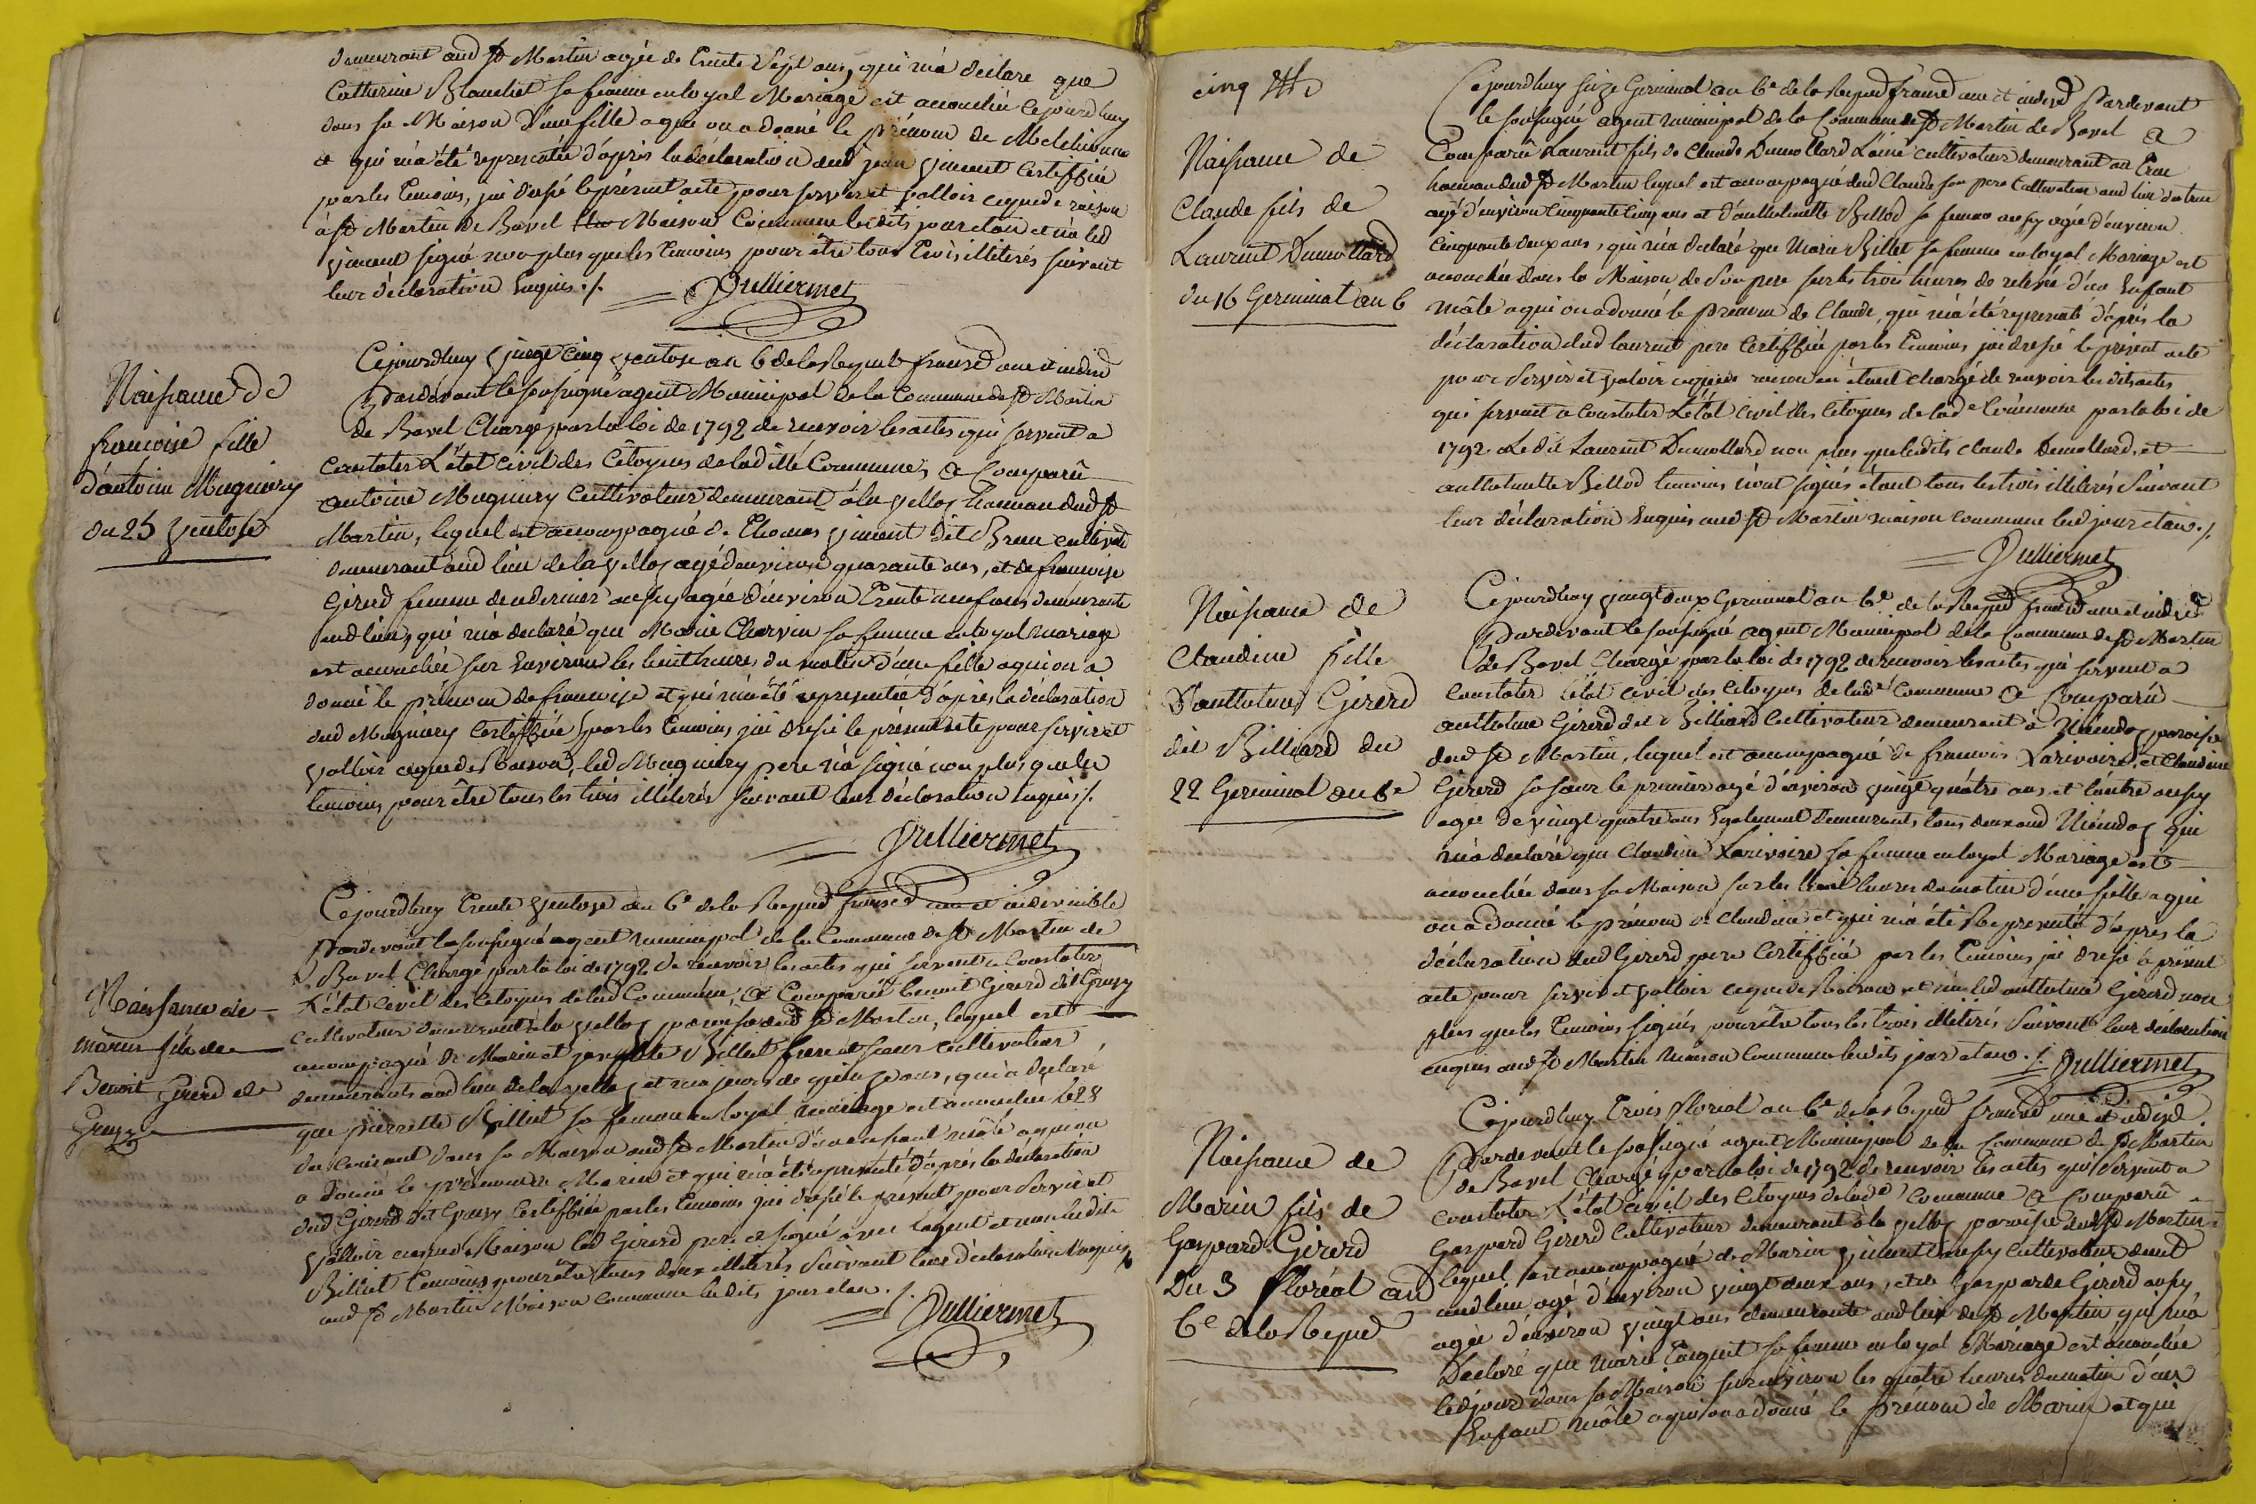 demeurant aud St Martin agée de trente sept ans, qui m'a declare que
Catherine Blanchet sa femme en loyal Mariage est accouchée cejourdhuy
dans sa Maison d'une fille a qui on a donné le prénom de Melchionne
et qui m'a été representée d'après la declaration dud jean vincent Certiffiée
par les temoins, jai dressé le présent acte pour servir et valloir ceque de raison
à St Martin de Bavel Maison Commune lesdits jour et an et n'a led
vincent signé non plus que les temoins pour être tous trois illiterés suivant
leur déclaration Enquis ./.
Julliermet
Naissance de
francoise fille
d'antoine Mugniery
du 25 ventose
Cejourdhuy vingt cinq ventose an 6 de la Repub francse une et indive
Pardevant le soussigné agent Municipal de la Commune de St Martin
de Bavel Chargé par la loi de 1792 de recevoir les actes qui servent a
Constater L'état Civil des Citoyens de laditte Commune, a Comparû
antoine Mugniery Cultivateur demeurant à la vellaz hameau dud St
Martin, lequel est accompagné de Thomas vincent dit Brun cultivatr
demeurant aud lieu de la vellaz agé d'environ quarante ans, et de francoise
Girerd femme de ce dernier aussy agée d'environ trente neuf ans demeurante
aud lieu, qui m'a declaré que Marie Charvin sa femme en loyal mariage
est accouchée sur Environ les huit heures du matin d'une fille a qui on a
donné le prénom de francoise et qui m'a été representée d'après la déclaration
dud Mugniery Certiffiée par les temoins jai dressé le présent acte pour servir et
valloir ceque de Raison, led Mugniery pere n'a signé non plus que les
temoins pour être tous les trois illiterés suivant leur déclaration Enquis ./.
Julliermet
Naissance de
marin fils de
Benoit Girerd de
Gruzy
Cejourdhuy trente ventose an 6e de la Repub francse une et indivisible
Pardevant le soussigné agent municipal de la Commune de St Martin de
Bavel Chargé par la loi de 1792 de recevoir les actes qui servent a Constater
L'état Civil des Citoyens de lad Commune, a Comparû benoit Girerd dit Gruzy
Cultivateur demeurant à la vellaz paroisse dud St Martin, lequel est
accompagné de Marin et josephte Billiet frere et soeur cultivateur
demeurants aud lieu de la vellaz et majeurs de quinze ans, qui a declaré
que pierrette Billiet sa femme en loyal mariage est accouchée le 28
du Courant dans sa Maison aud St Martin d'un enfant mâle a qui on
a donné le prénom de Marin et qui m'a été representé d'après la déclaration
dud Girerd dit Gruzy Certiffiée par les temoins jai dressé le présent pour servir et
valloir ceque de Raison led Girerd pere a signé avec l'agent et non lesdits
Billiet temoins pour être tous deux illiteres suivant leur déclaration Enquis
aud St Martin Maison Commune lesdits jour et an ./.
Julliermet
cinq
Naissance de
Claude fils de
Laurent Dumollard
du 16 Germinal an 6
Cejourdhuy seize Germinal an 6e de la Repub francse une et indivse Pardevant
le soussigné agent municipal de la Commune de St Martin de Bavel a
Comparû Laurent fils de Claude Dumollard L'ainé cultivateur demeurant au Trux
hameau dud St Martin lequel est accompagné dud Claude son pere Cultivateur aud lieu du trux
agé d'environ Cinquante Cinq ans et d'anthelmette Billod sa femme aussy agée d'environ
Cinquante deux ans, qui m'a declaré que Marie Billet sa femme en loyal Mariage est
accouchée dans la Maison de son pere sur les trois heures de relevé d'un Enfant
mâle a qui on a donné le prénom de Claude, qui m'a été representé d'après la
déclaration dud laurent pere Certiffiée par les temoins jai dressé le present acte
pour servir et valoir ceque de raison en étant chargé de recevoir les dits actes
qui servent a Constater L'état Civil des Citoyens de lade Commune par la loi de
1792 Ledit Laurent Dumollard non plus que lesdits Claude Dumollard, et
anthelmette Billod temoins n'ont signés étant tous les trois illiterés suivant
leur déclaration Enquis aud St Martin maison Commune lesd jour et an ./.
Julliermet
Naissance de
Claudine fille
D'anthelme Girerd
dit Billiard du
22 Germinal an 6e
Cejourdhuy vingt deux Germinal an 6e de la Repub francse une et indivse
Pardevant le soussigné agent Municipal de la Commune de St Martin
de Bavel Chargé par la loi de 1792 de recevoir les actes qui servent a
Constater L'état Civil des Citoyens de lade Commune a Comparû
anthelme Girerd dit Billiard Cultivateur demeurant à paroisse
dud St Martin, lequel est accompagné de francois Larivoire, et Claudine
Girerd sa soeur le premier agé d'environ vingt quatre ans et l'autre aussy
agée de vingt quatre ans Egalement demeurants tous deux aud qui
m'a declaré que Claudine Larivoire sa femme en loyal Mariage est
accouchée dans sa Maison sur les trois heures du matin d'une fille a qui
on a donné le prénom de Claudine et qui m'a été Representé d'après la
déclaration dud Girerd pere Certiffiée par les temoins jai dressé le présent
acte pour servir et valloir ceque de Raison et n'a led anthelme Girerd non
plus que les temoins signés pour être tous les trois illiterés Suivant leur déclaration
enquis aud St Martin Maison Commune lesdits jour et an ./. Julliermet
Naissance de
Marin fils de
Gaspard Girerd
Du 3 floréal an
6e de la Repub
Cejourdhuy trois floreal an 6e de la Repub francse une et indivse
Pardevant le soussigné agent Municipal de la Commune de St Martin
de Bavel Chargé par la loi de 1792 de recevoir les actes qui servent a
Constater L'état Civil des Citoyens de lade Commune a Comparû
Gaspard Girerd Cultivateur demeurant à la vellaz paroisse dud St Martin
lequel est accompagné de Marin vincent aussy Cultivateur demt
aud lieu agé d'environ vingt deux ans, et de Gasparde Girerd aussy
agée d'environ vingt ans demeurante aud lieu de St Martin qui m'a
Declaré que Marie sa femme en loyal Mariage est accouchée
led jour dans sa Maison sur environ les quatre heures du matin d'un
Enfant mâle a qui on a donné le prénom de Marin et qui